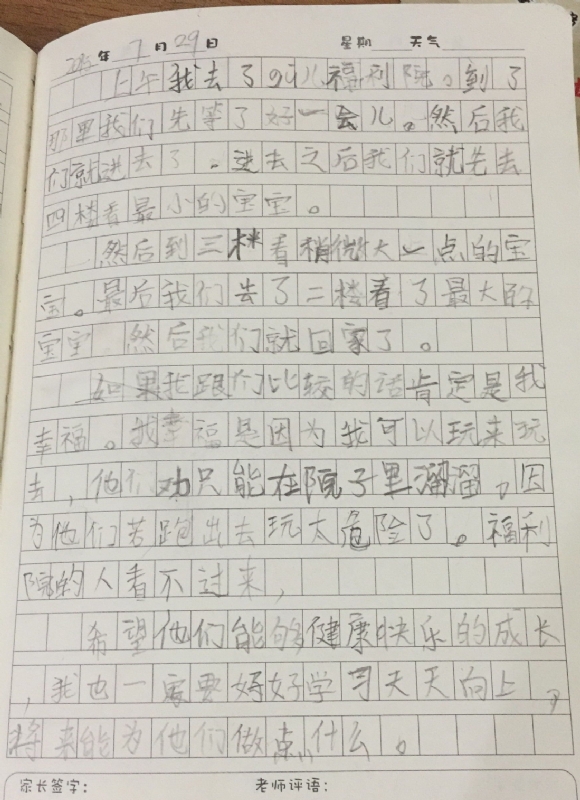 年 7 月 29 日 星期 天气
上午我去了 儿福利院。到了
那里我们先等了好一会儿。然后我
们就进去了。进去之后我们就先去
四楼看最小的宝宝。
然后到三楼看稍微大一点的宝
宝。最后我们去了二楼看了最大的
宝宝 然后我们就回家了。
如果我跟们比较的话肯定是我
幸福。我幸福是因为我可以玩来玩
去，他们 只能在院子里溜溜。因
为他们若跑出去玩太危险了。福利
院的人看不过来，
希望他们能够健康快乐的成长
，我也一定要好好学习天天向上，
将来能为他们做点什么。
家长签字： 老师评语：